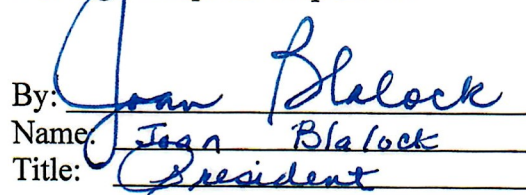 By: Joan Blalock
Name: Joan Blalock
Title: President